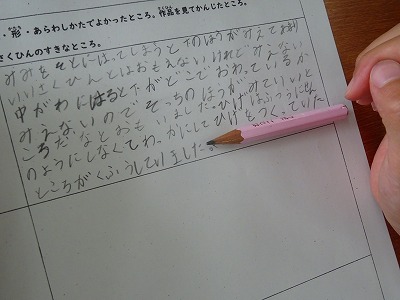 ・形・あらわしかたでよかったところ。作品を見てかんじたところ。
さくひんのすきなところ。
みみをそとにはってしまうと下のほうがみえてあまり
いいさくひんとはおもえないけれどみえない
中がわにはると下がどこでおわっているか
みえないのでそっちのほうがみていいと
ころだなとおもいました。ひげは
のようにしなくてわっかにしてひげをつくっていた
ところがくふうしていました。